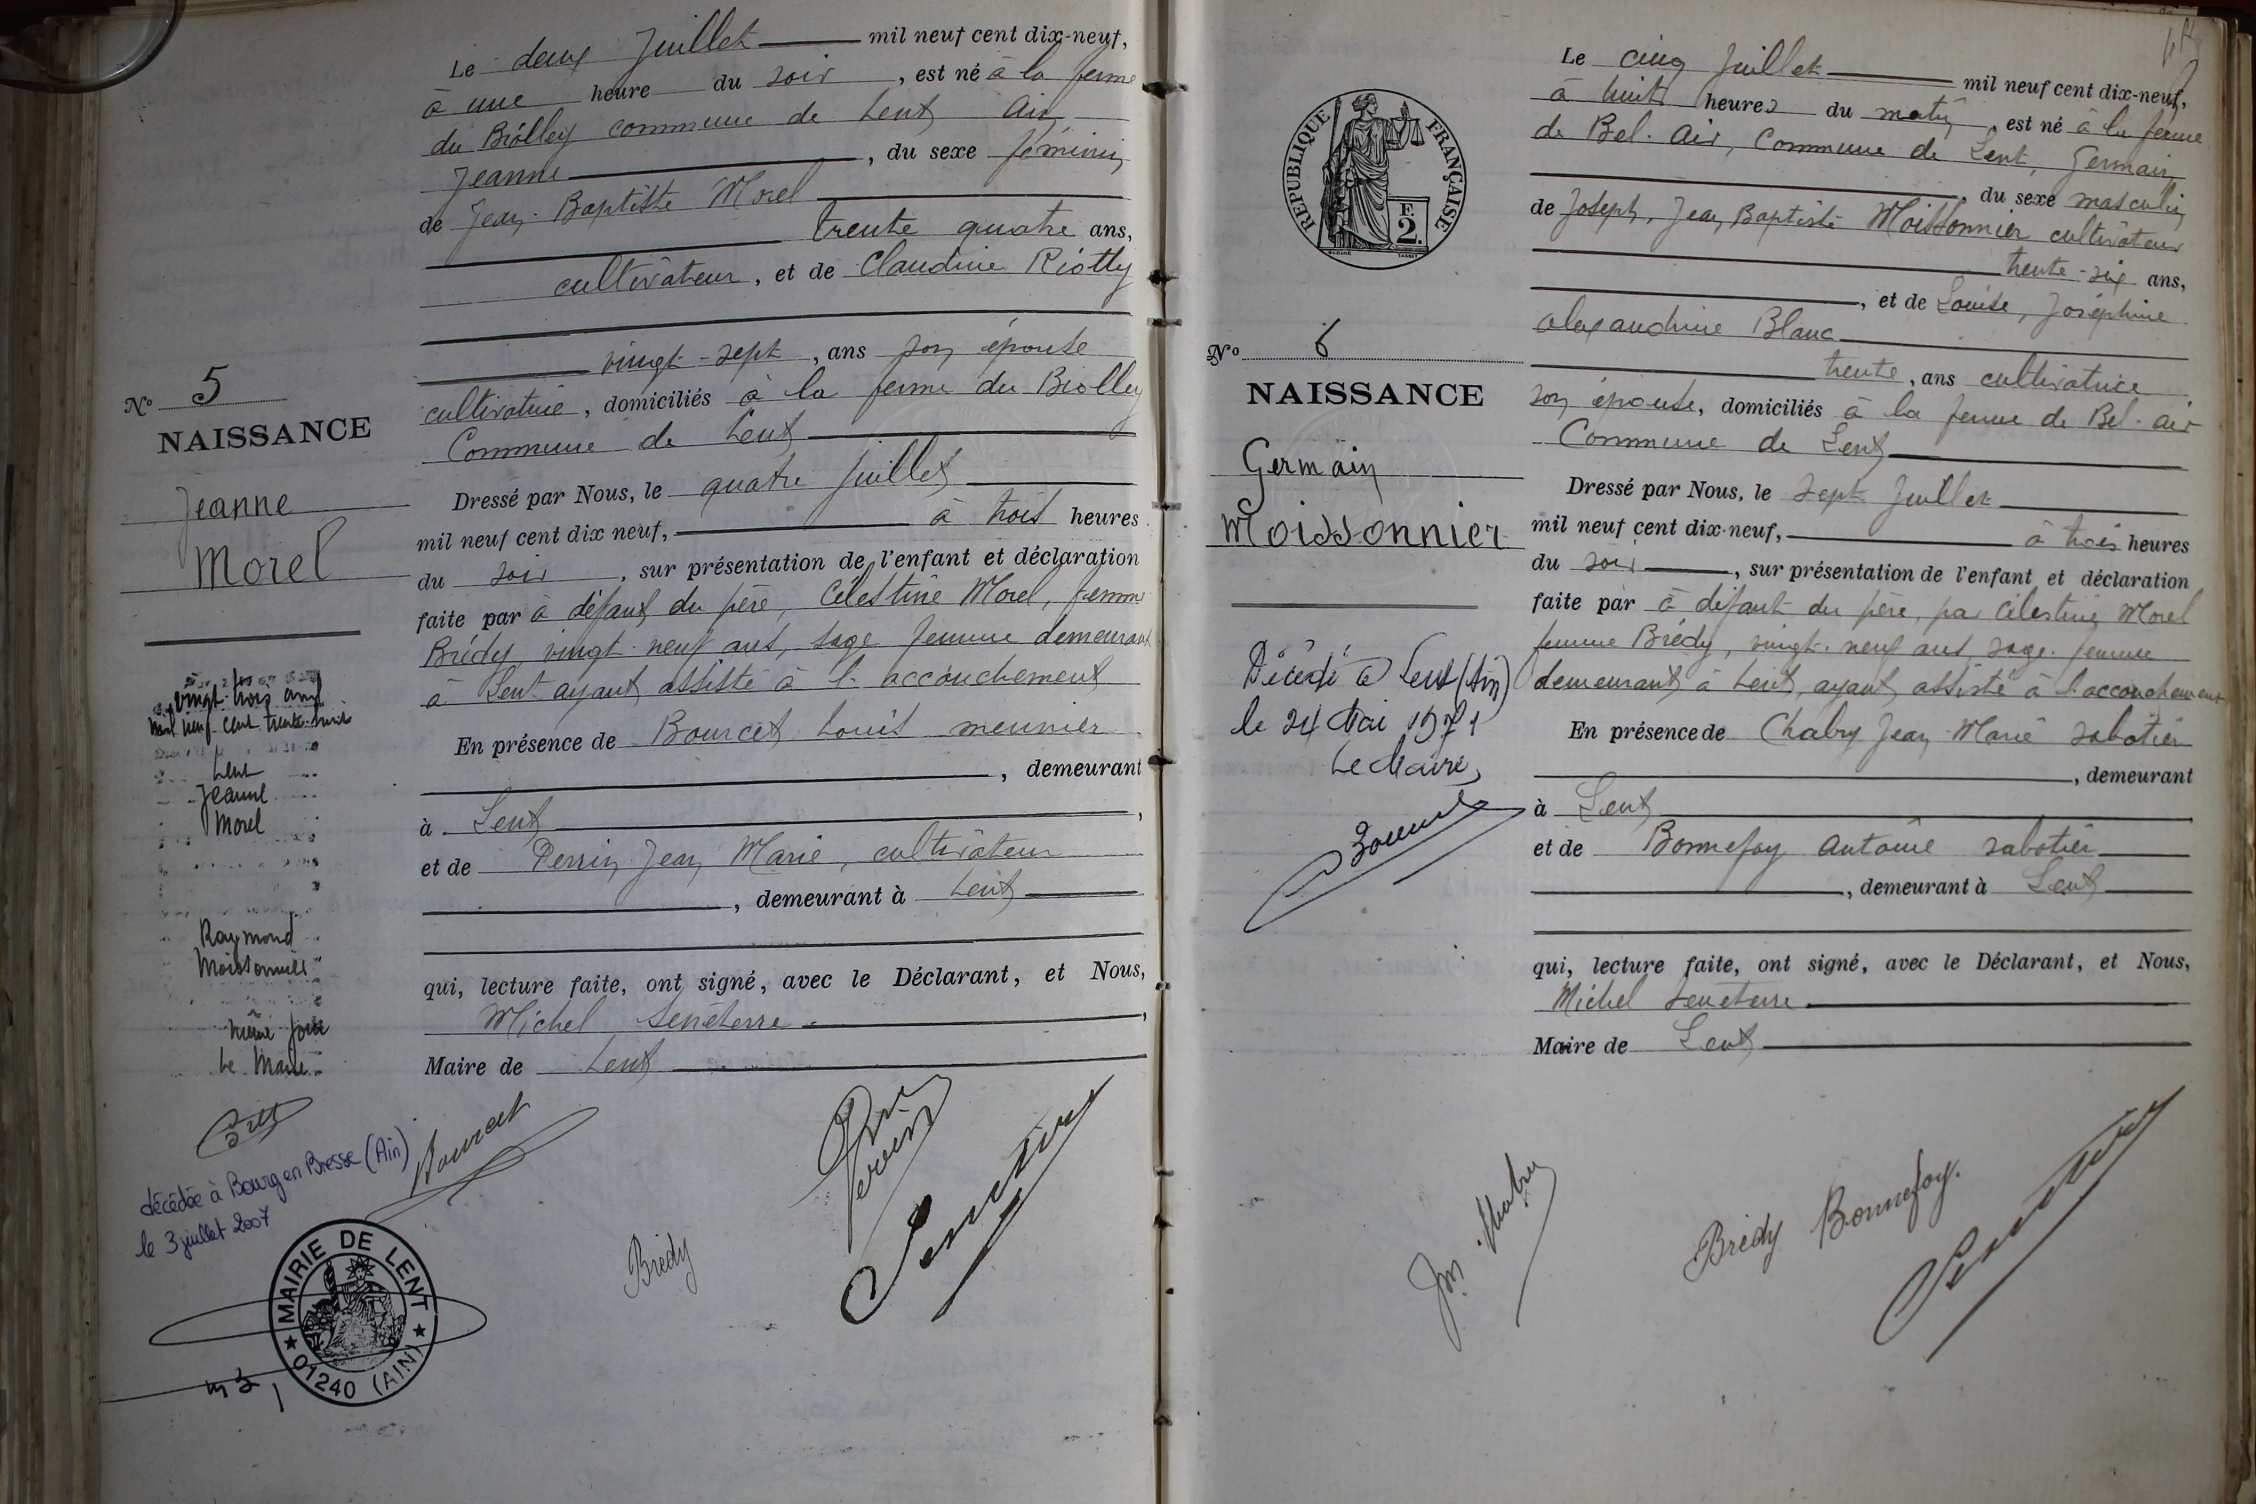 Le deux Juillet mil neuf cent dix-neuf,
à une heure du soir, est né à la ferme
du Biolley commune de Lent Ain
Jeanne, du sexe féminin
de Jean-Baptiste Morel
trente quatre ans,
cultivateur, et de Claudine Riotty
vingt-sept, ans son épouse
cultivatrice, domiciliés à la ferme du Biolley
Commune de Lent
Dressé par Nous, le quatre Juillet
mil neuf cent dix neuf, à trois heures
du soir, sur présentation de l'enfant et déclaration
faite par à défaut du père, Célestine Morel, femme
Brédy vingt-neuf ans, sage femme demeurant
à Lent ayant assisté à l'accouchement
En présence de Bourcet Louis meunier
, demeurant
à Lent,
et de Perrin Jean Marie, cultivateur
, demeurant à Lent
qui, lecture faite, ont signé, avec le Déclarant, et Nous,
Michel Seneterre,
Maire de Lent
No 5
NAISSANCE
Jeanne
Morel
vingt trois avril
mil neuf cent trente huit
Lent
Jeanne
Morel
Raymond
Moissonnier
même jour
Le Maire
décédée à Bourg en Bresse (Ain)
le 3 juillet 2007
MAIRIE DE LENT
01240 (AIN)
Bourcet
Brédy
Perrin
Seneterre
Le cinq Juillet mil neuf cent dix-neuf,
à huit heures du matin, est né à la ferme
de Bel-Air, Commune de Lent, Germain
, du sexe masculin
de Joseph, Jean, Baptiste Moissonnier cultivateur
trente-six ans,
, et de Louise, Joséphine
Alexandrine Blanc
trente, ans cultivatrice
son épouse, domiciliés à la ferme de Bel-air
Commune de Lent
Dressé par Nous, le sept Juillet
mil neuf cent dix-neuf, à trois heures
du soir, sur présentation de l'enfant et déclaration
faite par à défaut du père, par Célestine Morel
femme Brédy, vingt-neuf ans sage-femme
demeurant à Lent, ayant assisté à l'accouchement
En présence de Chabry Jean-Marie sabotier
, demeurant
à Lent
et de Bonnefoy Antoine sabotier
, demeurant à Lent
qui, lecture faite, ont signé, avec le Déclarant, et Nous,
Michel Seneterre
Maire de Lent
RÉPUBLIQUE FRANÇAISE
F.
2.
No 6
NAISSANCE
Germain
Moissonnier
Décédé à Lent (Ain)
le 24 Mai 1971
Le Maire,
Jm Chabry
Brédy
Bonnefoy.
Seneterre